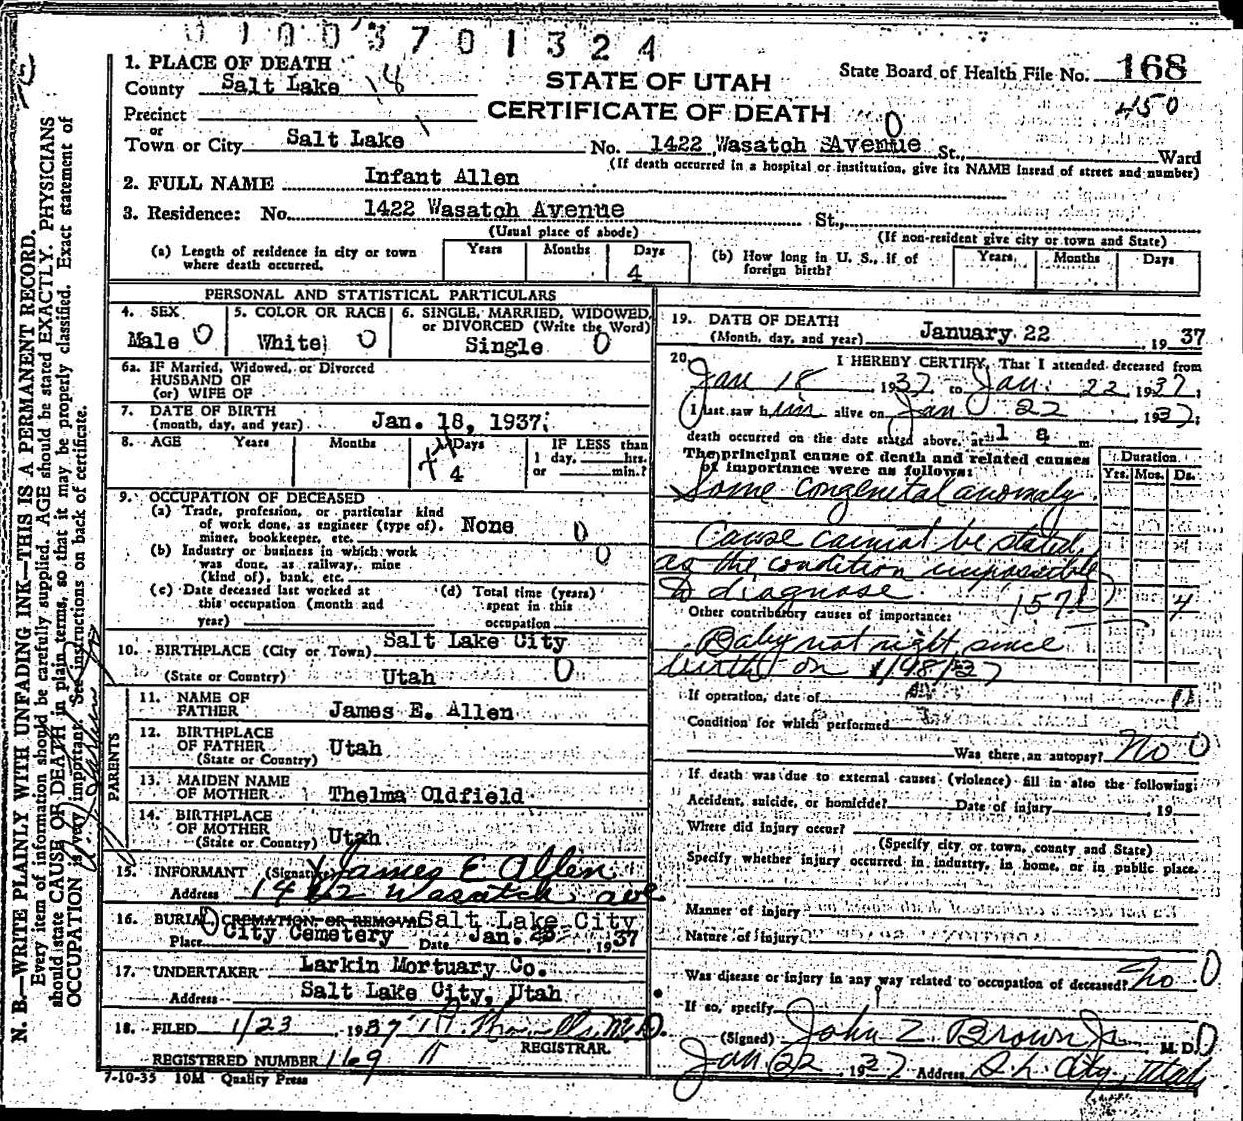 01003701324
1. PLACE OF DEATH
County Salt Lake 18
STATE OF UTAH
CERTIFICATE OF DEATH
State Board of Health File No. 168
450
Precinct
or
Town or City Salt Lake 1 No. 1422 Wasatch Avenue St., Ward
0
(If death occurred in a hospital or institution, give its NAME instead of street and number)
2. FULL NAME Infant Allen
3. Residence: No. 1422 Wasatch Avenue St.,
(Usual place of abode) (If non-resident give city or town and State)
(a) Length of residence in city or town where death occurred. Years Months Days 4
(b) How long in U. S., if of foreign birth? Years Months Days
PERSONAL AND STATISTICAL PARTICULARS
4. SEX Male 0
5. COLOR OR RACE White 0
6. SINGLE, MARRIED, WIDOWED, or DIVORCED (Write the Word) Single 0
6a. IF Married, Widowed, or Divorced
HUSBAND OF
(or) WIFE OF
7. DATE OF BIRTH
(month, day, and year) Jan. 18, 1937.
8. AGE Years Months Days 4
IF LESS than
1 day, hrs.
or min.?
9. OCCUPATION OF DECEASED
(a) Trade, profession, or particular kind
of work done, as engineer (type of), None 0
miner, bookkeeper, etc.
(b) Industry or business in which work 0
was done, as railway, mine
(kind of), bank, etc.
(c) Date deceased last worked at
this occupation (month and
year)
(d) Total time (years)
spent in this
occupation
10. BIRTHPLACE (City or Town) Salt Lake City
(State or Country) Utah 0
PARENTS
11. NAME OF
FATHER James E. Allen
12. BIRTHPLACE
OF FATHER Utah
(State or Country)
13. MAIDEN NAME
OF MOTHER Thelma Oldfield
14. BIRTHPLACE
OF MOTHER
(State or Country) Utah
15. INFORMANT (Signature) James E Allen
Address 1422 Wasatch ave
16. BURIAL CREMATION OR REMOVAL Salt Lake City
Place City Cemetery Date Jan. 1937
17. UNDERTAKER Larkin Mortuary Co.
Address Salt Lake City, Utah
18. FILED 1/23, 1937 M.D.
REGISTRAR.
REGISTERED NUMBER 169
7-10-35 10M Quality Press
19. DATE OF DEATH
(Month, day, and year) January 22, 1937
20. I HEREBY CERTIFY, That I attended deceased from
Jan 18 1937 to Jan. 22, 1937;
I last saw him alive on Jan 22 1937;
death occurred on the date stated above, at 1 a m.
The principal cause of death and related causes
of importance were as follows:
Duration
Yrs. Mos. Ds.
Some congenital anomaly.
Cause cannot be stated,
as the condition impossible
to diagnose 4
Other contributory causes of importance:
Baby not right since
birth on
If operation, date of
Condition for which performed
Was there an autopsy? No 0
If death was due to external causes (violence) fill in also the following:
Accident, suicide, or homicide? Date of injury 19
Where did injury occur?
(Specify city or town, county and State)
Specify whether injury occurred in industry, in home, or in public place.
Manner of injury
Nature of injury
Was disease or injury in any way related to occupation of deceased? No 0
If so, specify
(Signed) John Z Brown Jr M. D. 0
Jan 22 1937 Address S. L. City, Utah
N. B.—WRITE PLAINLY WITH UNFADING INK—THIS IS A PERMANENT RECORD.
Every item of information should be carefully supplied. AGE should be stated EXACTLY. PHYSICIANS
should state CAUSE OF DEATH in plain terms, so that it may be properly classified. Exact statement of
OCCUPATION is very important. See instructions on back of certificate.